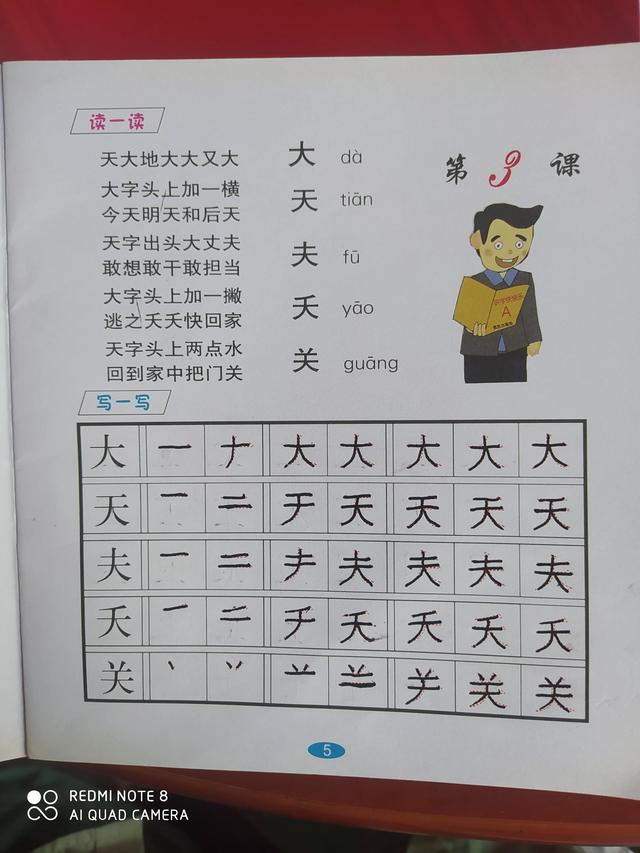 读一读
第3课
天大地大大又大
大 dà
大字头上加一横
今天明天和后天
天 tiān
天字出头大丈夫
敢想敢干敢担当
夫 fū
大字头上加一撇
逃之夭夭快回家
夭 yāo
天字头上两点水
回到家中把门关
关 guāng
A
写一写
大 一 ナ 大 大 大 大 大
天 一 二 于 天 天 天 天
夫 一 二 夫 夫 夫 夫
夭 一 二 夭 夭 夭 夭
关 丶 丷 关 关 关
5
REDMI NOTE 8
AI QUAD CAMERA